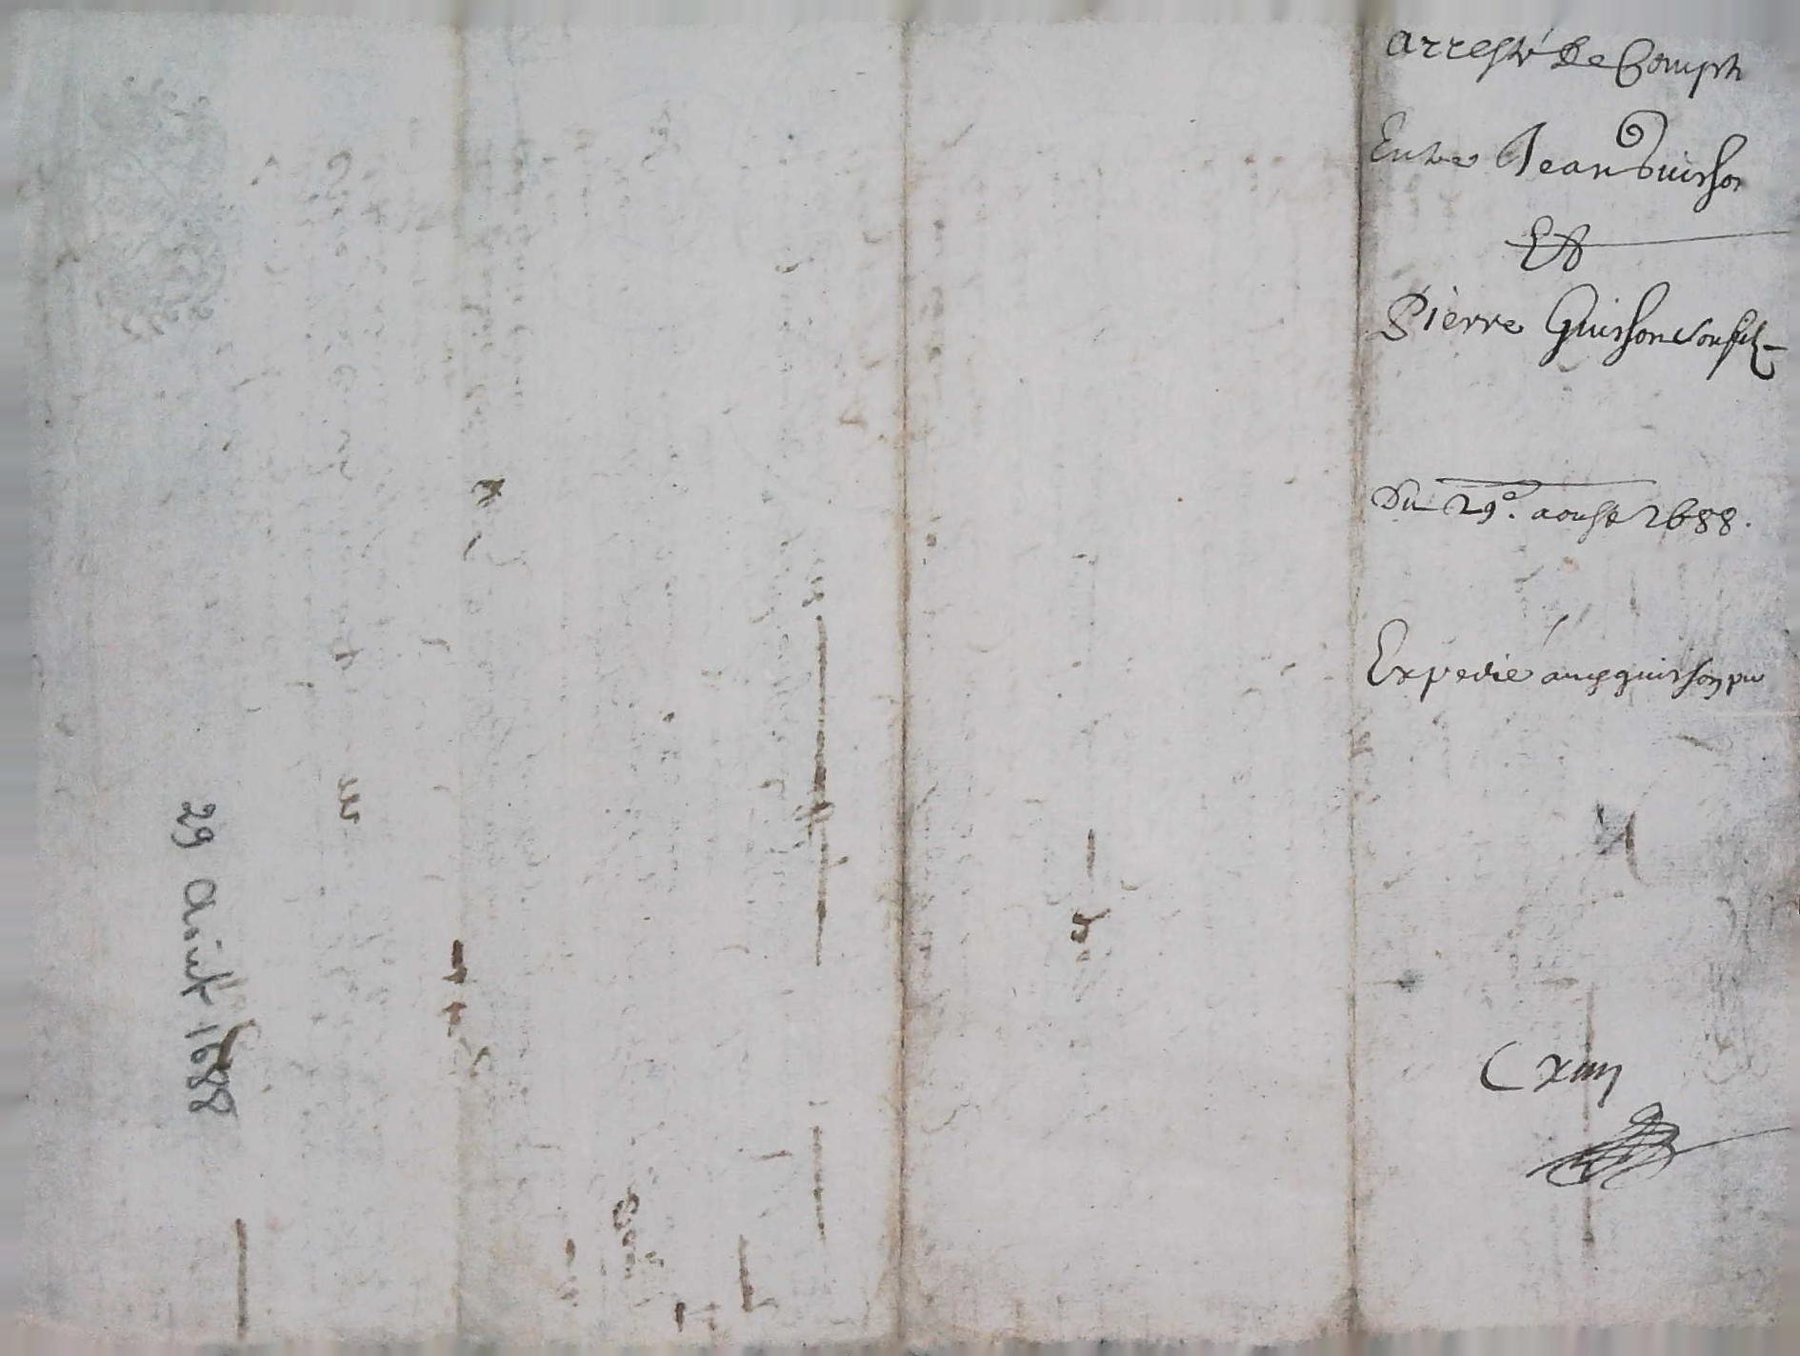 arresté de Compte
Entre Jean Guisson
Et
Pierre Guisson son filz
Du 29e. aoust 1688.
Expedié aud guisson
Cxiiij
29 Août 1688